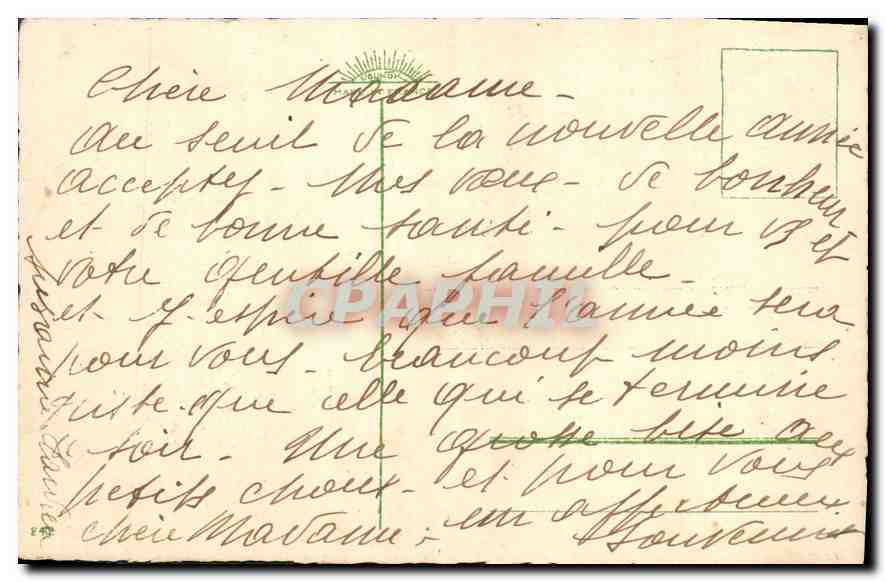 COLUMBIA
Chère Madame -
au seuil de la nouvelle année
acceptez - mes vœux - de bonheur
et de bonne santé - pour vs et
votre gentille famille
et - j'espère que l'année sera
pour vous - beaucoup moins
triste que celle qui se termine
soir - une grosse bise aux
petits choux - et pour vous
chère Madame - un affectueux
souvenir
CPAPHIL
842